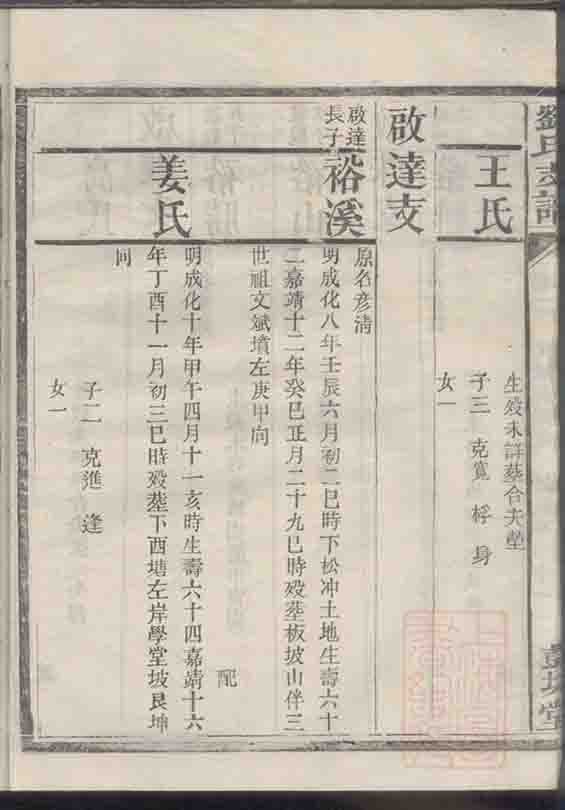 劉氏支譜
王氏
生殁未詳葬合夫塋
子三 克寬 桴 身
女一
啟達支
啟達長子
裕溪
原名彦清
明成化八年壬辰六月初二巳時下松冲土地生壽六十
二嘉靖十二年癸巳正月二十九巳時殁葬板坡山伴三
世祖文斌墳左庚甲向
配
姜氏
明成化十年甲午四月十一亥時生壽六十四嘉靖十六
年丁酉十一月初三巳時殁葬下西塘左岸學堂坡艮坤
向
子二 克進 逢
女一